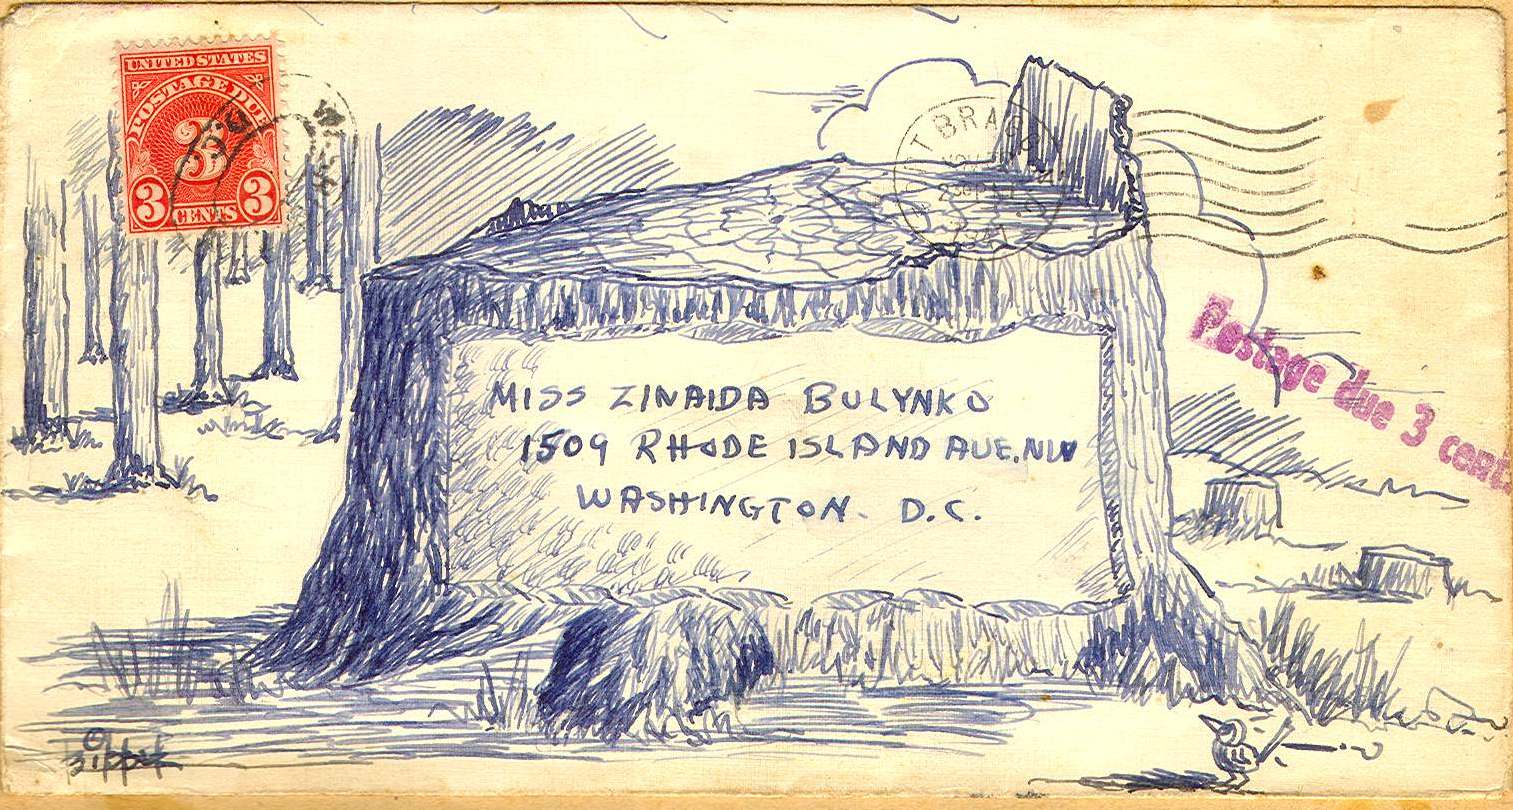 UNITED STATES
POSTAGE DUE
3
3 CENTS 3
D.C.
T BRAG
Postage due 3 cent
MISS ZINAIDA BULYNKO
1509 RHODE ISLAND AVE. NW
WASHINGTON. D.C.